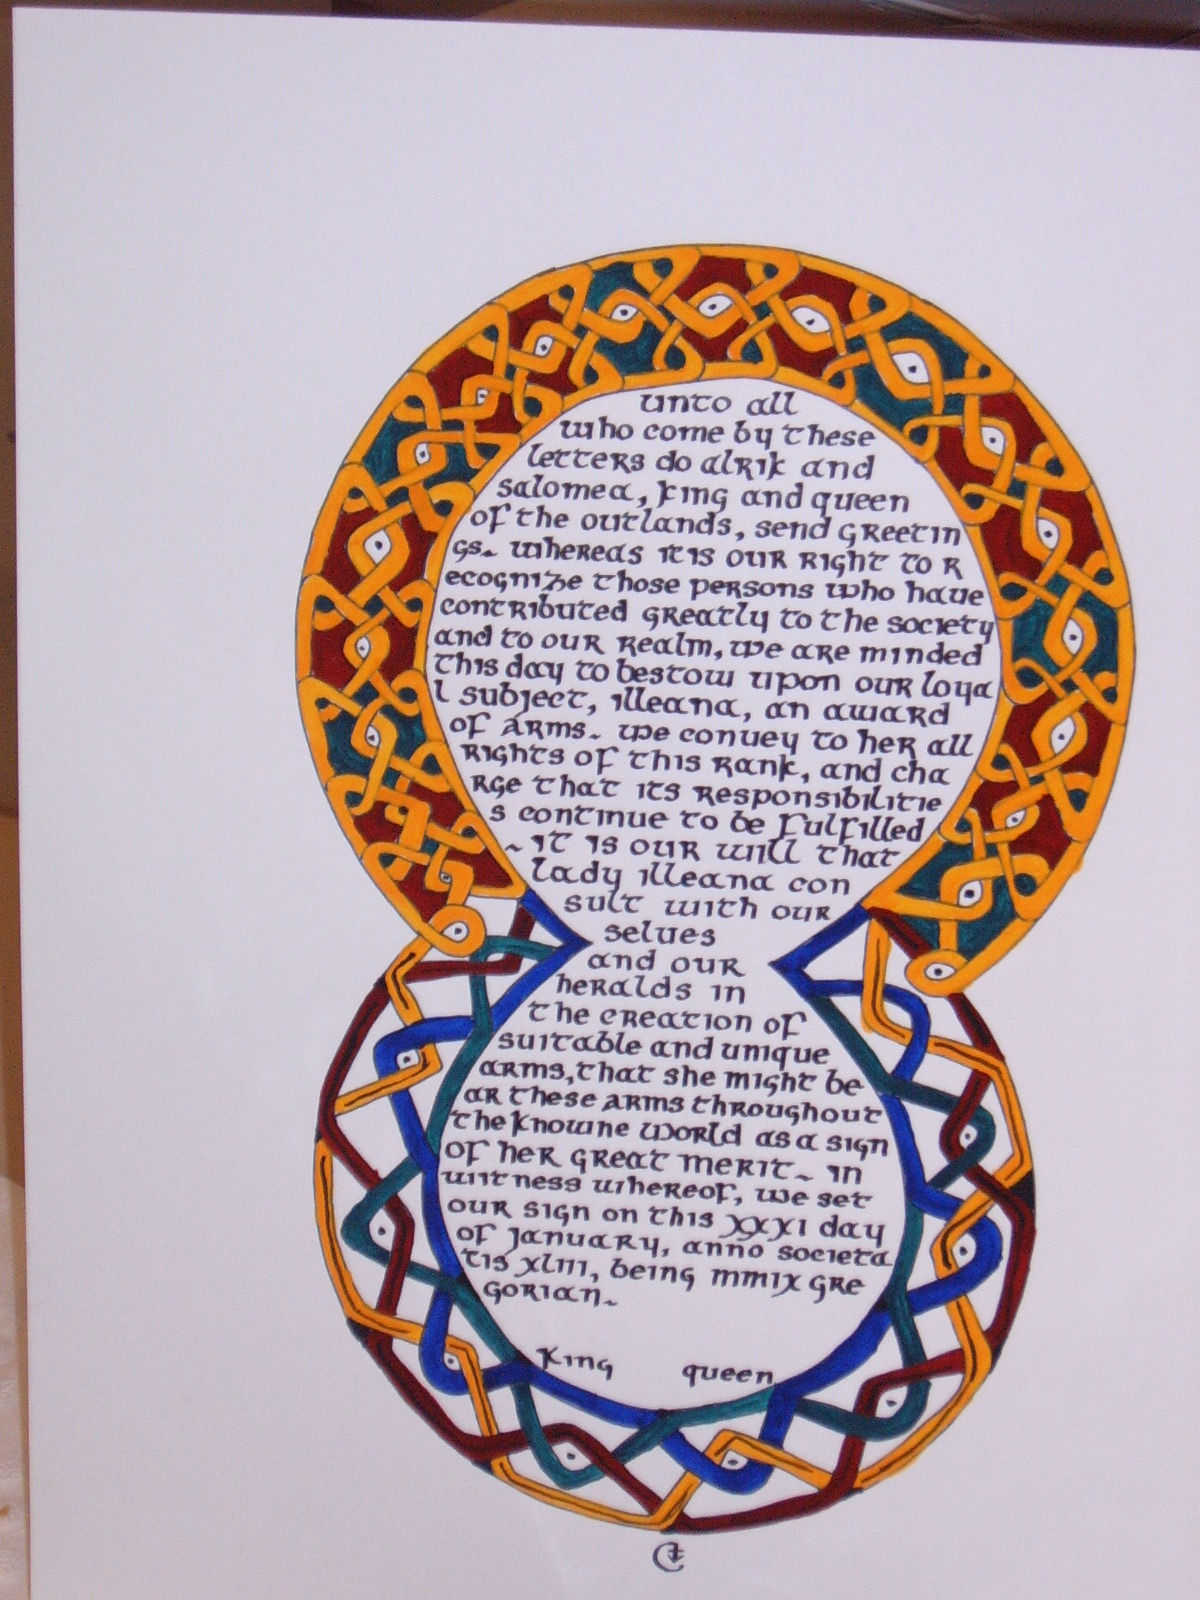 unto all
who come by these
letters do alrik and
salomea, king and queen
of the outlands, send greetin
gs~ whereas it is our right to r
ecognize those persons who have
contributed greatly to the society
and to our realm, we are minded
this day to bestow upon our loya
l subject, illeana, an award
of arms~ we convey to her all
rights of this rank, and cha
rge that its responsibilitie
s continue to be fulfilled
~ it is our will that
lady illeana con
sult with our
selves
and our
heralds in
the creation of
suitable and unique
arms, that she might be
ar these arms throughout
the knowne world as a sign
of her great merit~ in
witness whereof, we set
our sign on this xxxi day
of january, anno societa
tis xliii, being mmix gre
gorian~
king queen